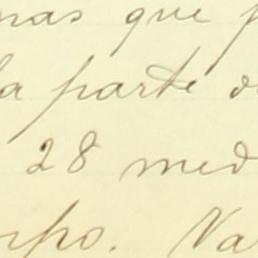 mas que p
la parte d
28 med
erpo. Va